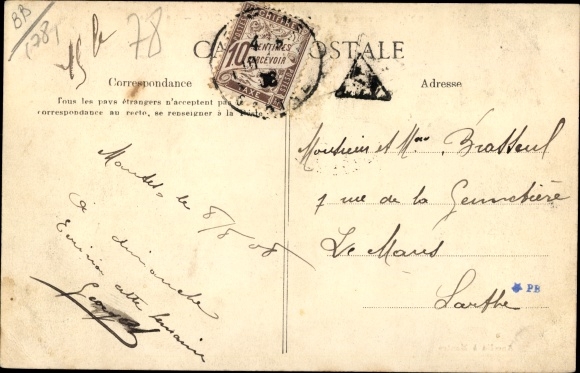 BB
(78)
78
CARTE POSTALE
10
CENTIMES
A
PERCEVOIR
Correspondance
Adresse
Tous les pays étrangers n'acceptent pas la
correspondance au recto, se renseigner à la Poste
T
Mantes le 8/8 08
A dimanche
Ecrirai cette semaine
Georges
Monsieur et Mme Brasseul
7 rue de la Geumetière
Le Mans
Sarthe
PB